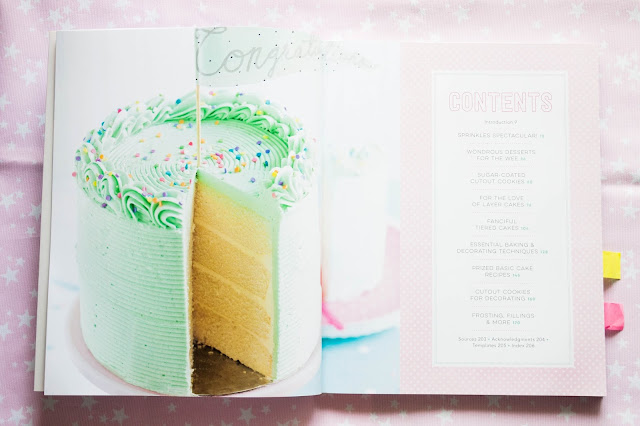 Congratulations
CONTENTS
Introduction 7
SPRINKLES SPECTACULAR!
WONDROUS DESSERTS
FOR THE WEE
SUGAR-COATED
CUTOUT COOKIES
FOR THE LOVE
OF LAYER CAKES
FANCIFUL
TIERED CAKES
ESSENTIAL BAKING &
DECORATING TECHNIQUES
PRIZED BASIC CAKE
RECIPES
CUTOUT COOKIES
FOR DECORATING
FROSTING, FILLINGS
& MORE
Sources 203 • Acknowledgments 204 •
Templates 205 • Index 206